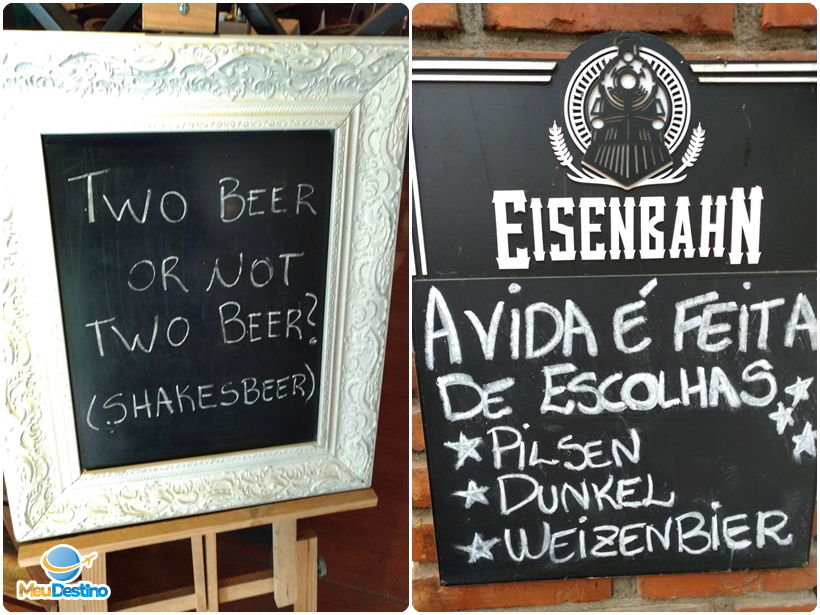 TWO BEER
OR NOT
TWO BEER?
(SHAKESBEER)
MeuDestino
EISENBAHN
A VIDA É FEITA
DE ESCOLHAS
PILSEN
DUNKEL
WEIZENBIER